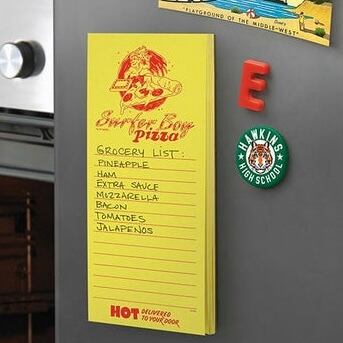 "PLAYGROUND OF THE MIDDLE-WEST"
E
HAWKINS
HIGH SCHOOL
Surfer Boy
Pizza
GROCERY LIST:
PINEAPPLE
HAM
EXTRA SAUCE
MOZZARELLA
BACON
TOMATOES
JALAPENOS
HOT DELIVERED
TO YOUR DOOR